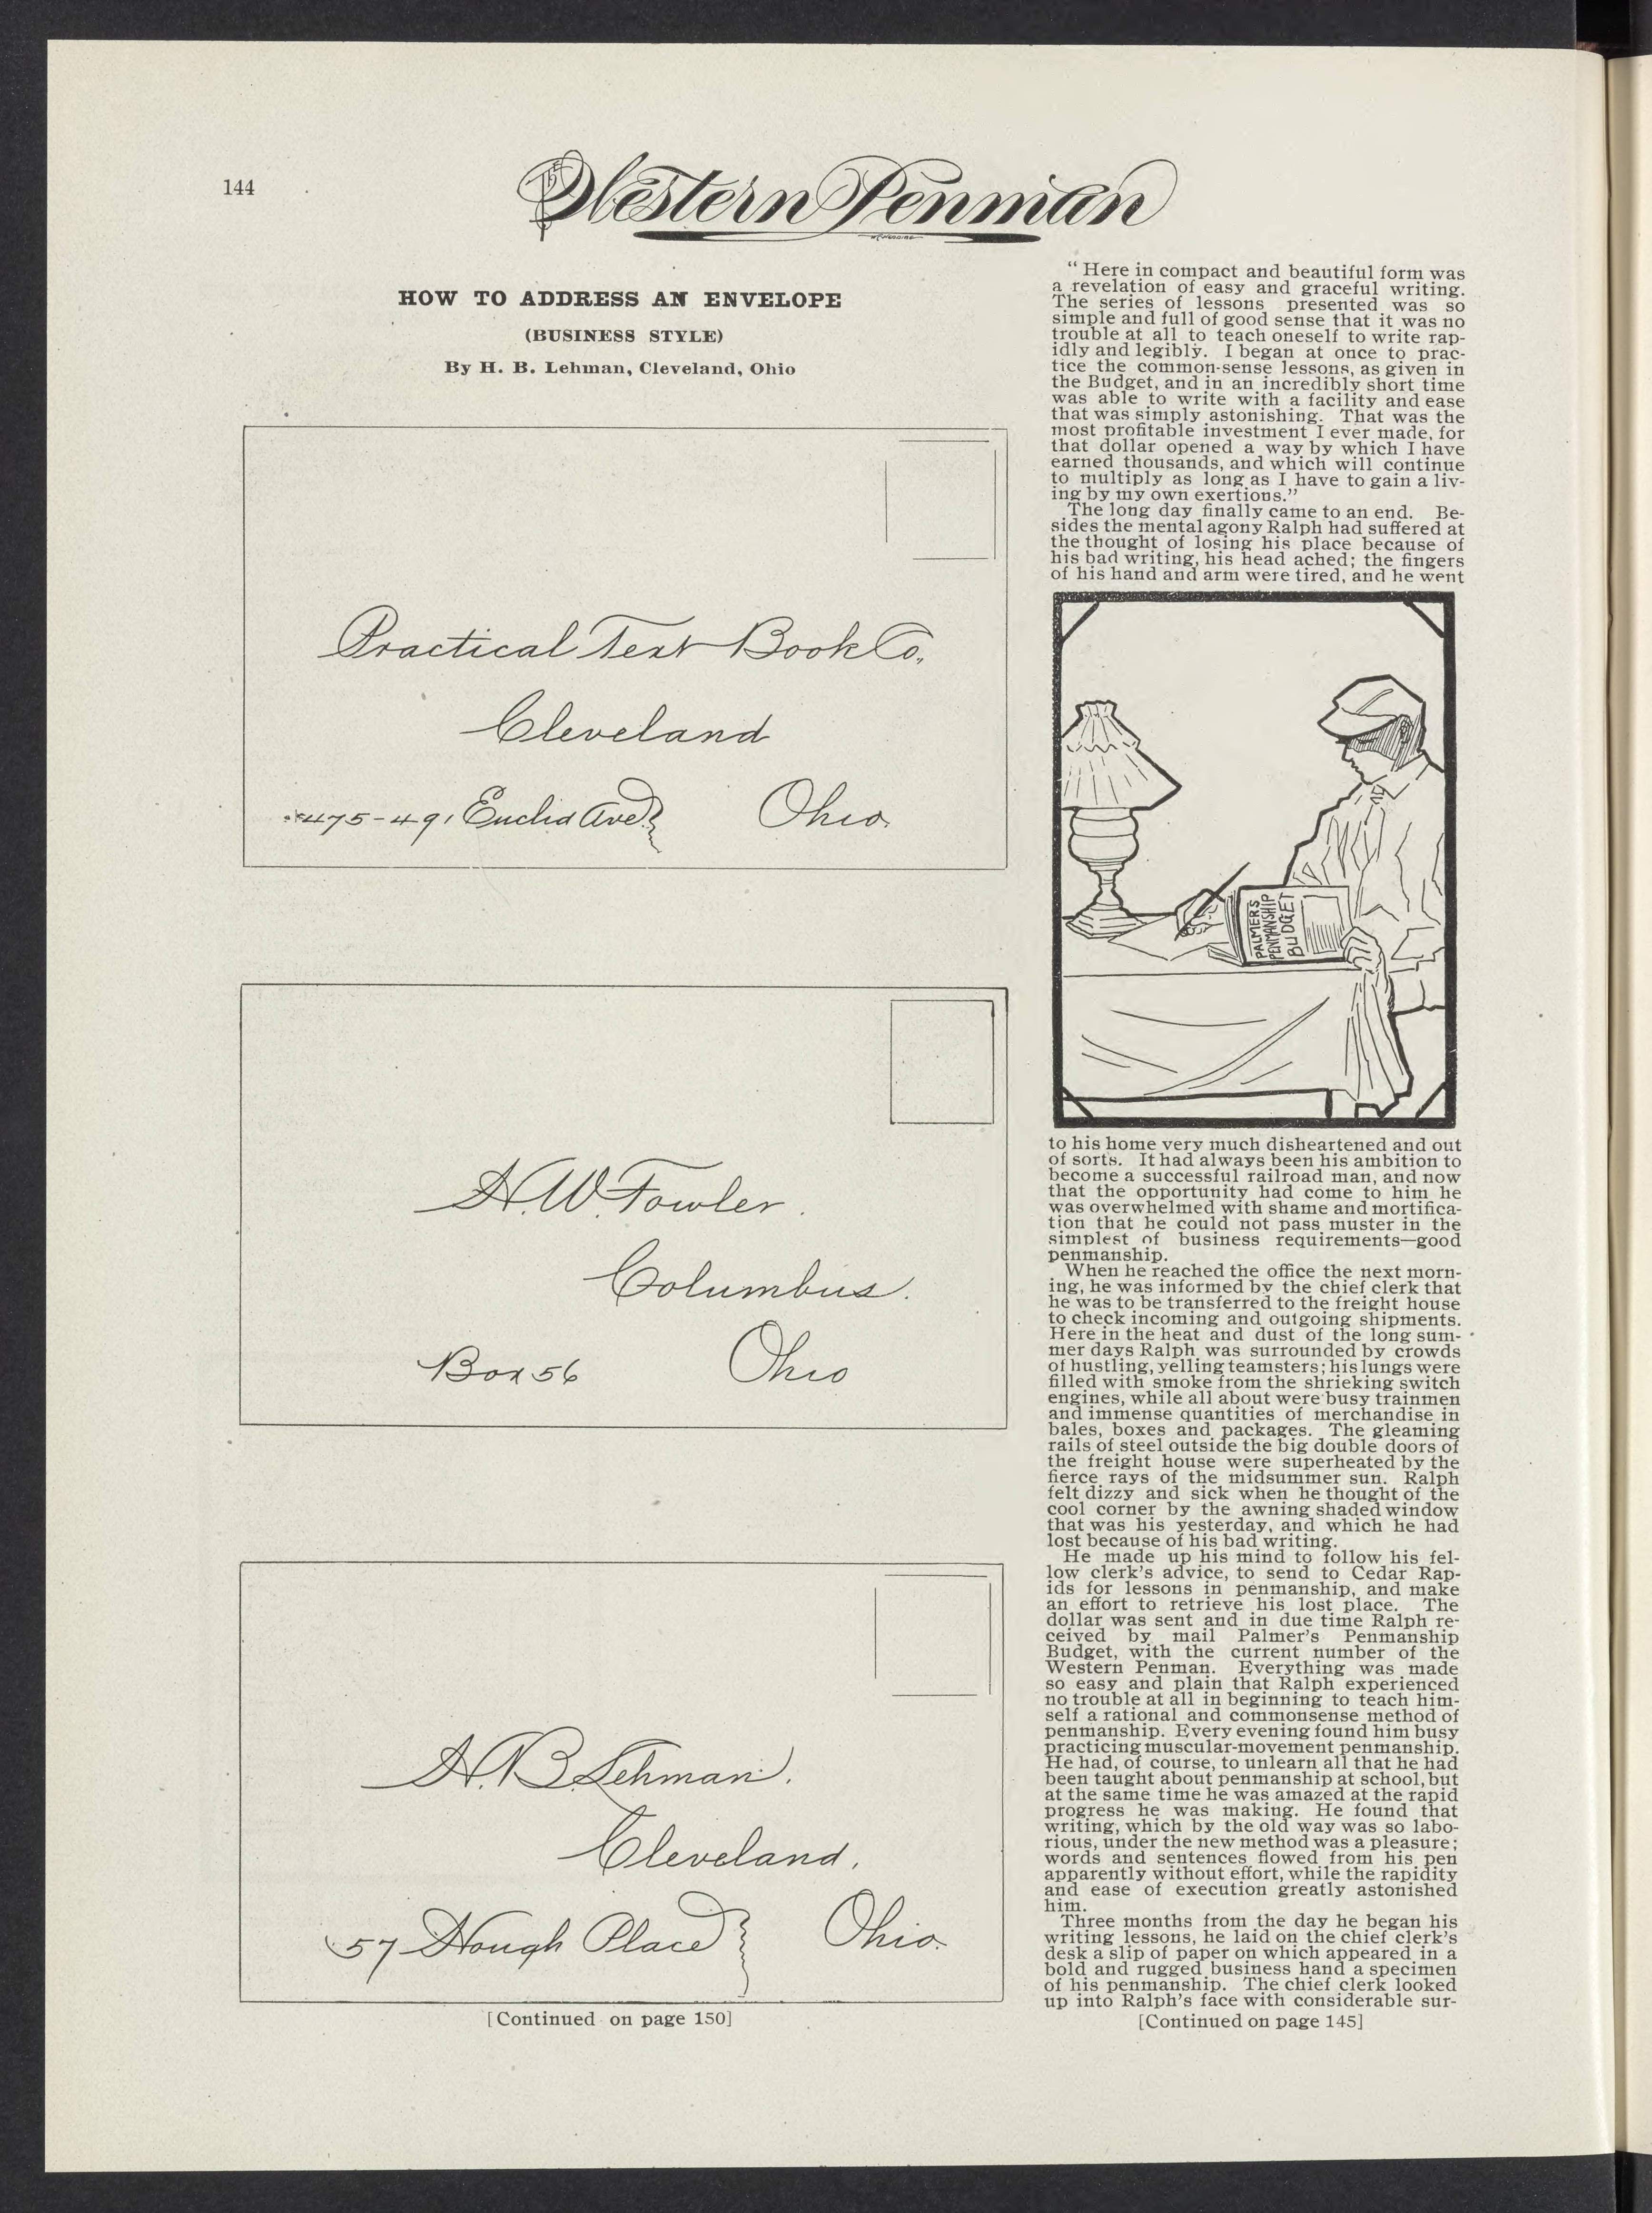 144
The Western Penman
HOW TO ADDRESS AN ENVELOPE
(BUSINESS STYLE)
By H. B. Lehman, Cleveland, Ohio
Practical Text Book Co.,
Cleveland
475-491 Euclid Ave.
Ohio.
H. W. Fowler.
Columbus.
Box 56
Ohio
H. B. Lehman.
Cleveland.
57 Hough Place
Ohio.
[Continued on page 150]
“Here in compact and beautiful form was
a revelation of easy and graceful writing.
The series of lessons presented was so
simple and full of good sense that it was no
trouble at all to teach oneself to write rap-
idly and legibly. I began at once to prac-
tice the common-sense lessons, as given in
the Budget, and in an incredibly short time
was able to write with a facility and ease
that was simply astonishing. That was the
most profitable investment I ever made, for
that dollar opened a way by which I have
earned thousands, and which will continue
to multiply as long as I have to gain a liv-
ing by my own exertions.”
The long day finally came to an end. Be-
sides the mental agony Ralph had suffered at
the thought of losing his place because of
his bad writing, his head ached; the fingers
of his hand and arm were tired, and he went
PALMER'S
PENMANSHIP
BUDGET
to his home very much disheartened and out
of sorts. It had always been his ambition to
become a successful railroad man, and now
that the opportunity had come to him he
was overwhelmed with shame and mortifica-
tion that he could not pass muster in the
simplest of business requirements—good
penmanship.
When he reached the office the next morn-
ing, he was informed by the chief clerk that
he was to be transferred to the freight house
to check incoming and outgoing shipments.
Here in the heat and dust of the long sum-
mer days Ralph was surrounded by crowds
of hustling, yelling teamsters; his lungs were
filled with smoke from the shrieking switch
engines, while all about were busy trainmen
and immense quantities of merchandise in
bales, boxes and packages. The gleaming
rails of steel outside the big double doors of
the freight house were superheated by the
fierce rays of the midsummer sun. Ralph
felt dizzy and sick when he thought of the
cool corner by the awning shaded window
that was his yesterday, and which he had
lost because of his bad writing.
He made up his mind to follow his fel-
low clerk's advice, to send to Cedar Rap-
ids for lessons in penmanship, and make
an effort to retrieve his lost place. The
dollar was sent and in due time Ralph re-
ceived by mail Palmer's Penmanship
Budget, with the current number of the
Western Penman. Everything was made
so easy and plain that Ralph experienced
no trouble at all in beginning to teach him-
self a rational and commonsense method of
penmanship. Every evening found him busy
practicing muscular-movement penmanship.
He had, of course, to unlearn all that he had
been taught about penmanship at school, but
at the same time he was amazed at the rapid
progress he was making. He found that
writing, which by the old way was so labo-
rious, under the new method was a pleasure;
words and sentences flowed from his pen
apparently without effort, while the rapidity
and ease of execution greatly astonished
him.
Three months from the day he began his
writing lessons, he laid on the chief clerk's
desk a slip of paper on which appeared in a
bold and rugged business hand a specimen
of his penmanship. The chief clerk looked
up into Ralph's face with considerable sur-
[Continued on page 145]